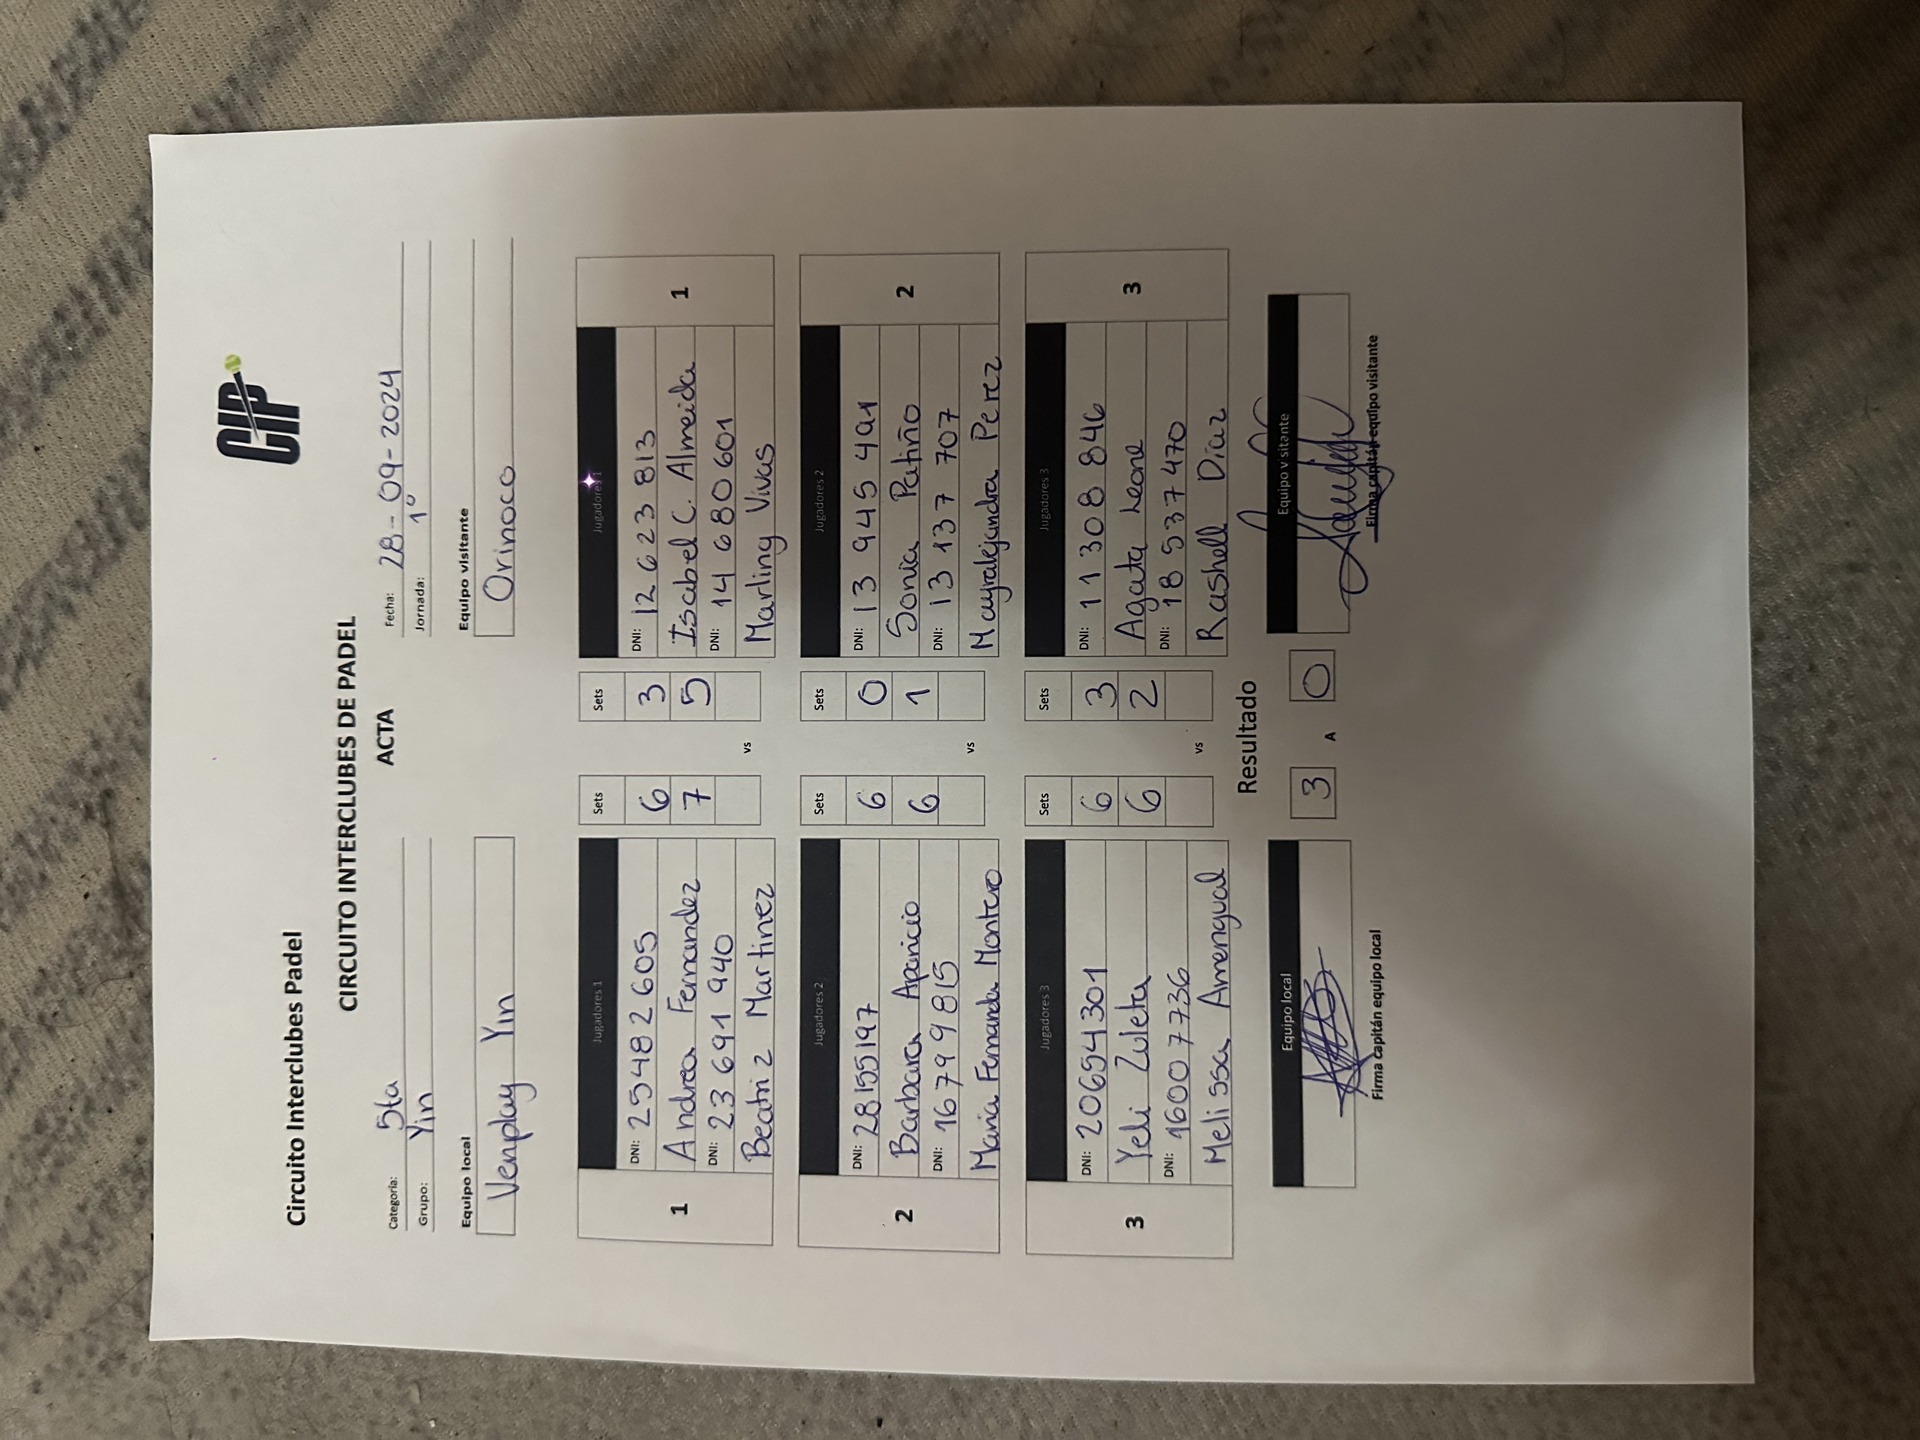 CIP
Circuito Interclubes Padel
CIRCUITO INTERCLUBES DE PADEL
ACTA
Categoría: 5ta
Fecha: 28-09-2024
Grupo: Yin
Jornada: 1º
Equipo local
Equipo visitante
Venplay Yin
Orinoco
Jugadores 1
Sets
Sets
Jugadores 1
1
DNI: 25482605
6
3
DNI: 12623813
1
Andrea Fernandez
7
5
Isabel C. Almeida
DNI: 23691940
DNI: 14680601
Beatriz Martinez
vs
Marling Vivas
Jugadores 2
Sets
Sets
Jugadores 2
2
DNI: 28155197
6
0
DNI: 13 945 491
2
Barbara Aparicio
6
1
Sonia Patiño
DNI: 16799815
DNI: 13 137 707
Maria Fernanda Montero
vs
Mayralejandra Perez
Jugadores 3
Sets
Sets
Jugadores 3
3
DNI: 20654301
6
3
DNI: 11308846
3
Yeli Zuleta
6
2
Agata Leone
DNI: 16007736
DNI: 18537470
Melissa Amengual
vs
Rashell Diaz
Resultado
Equipo local
3
A
0
Equipo visitante
Firma capitán equipo local
Firma capitán equipo visitante